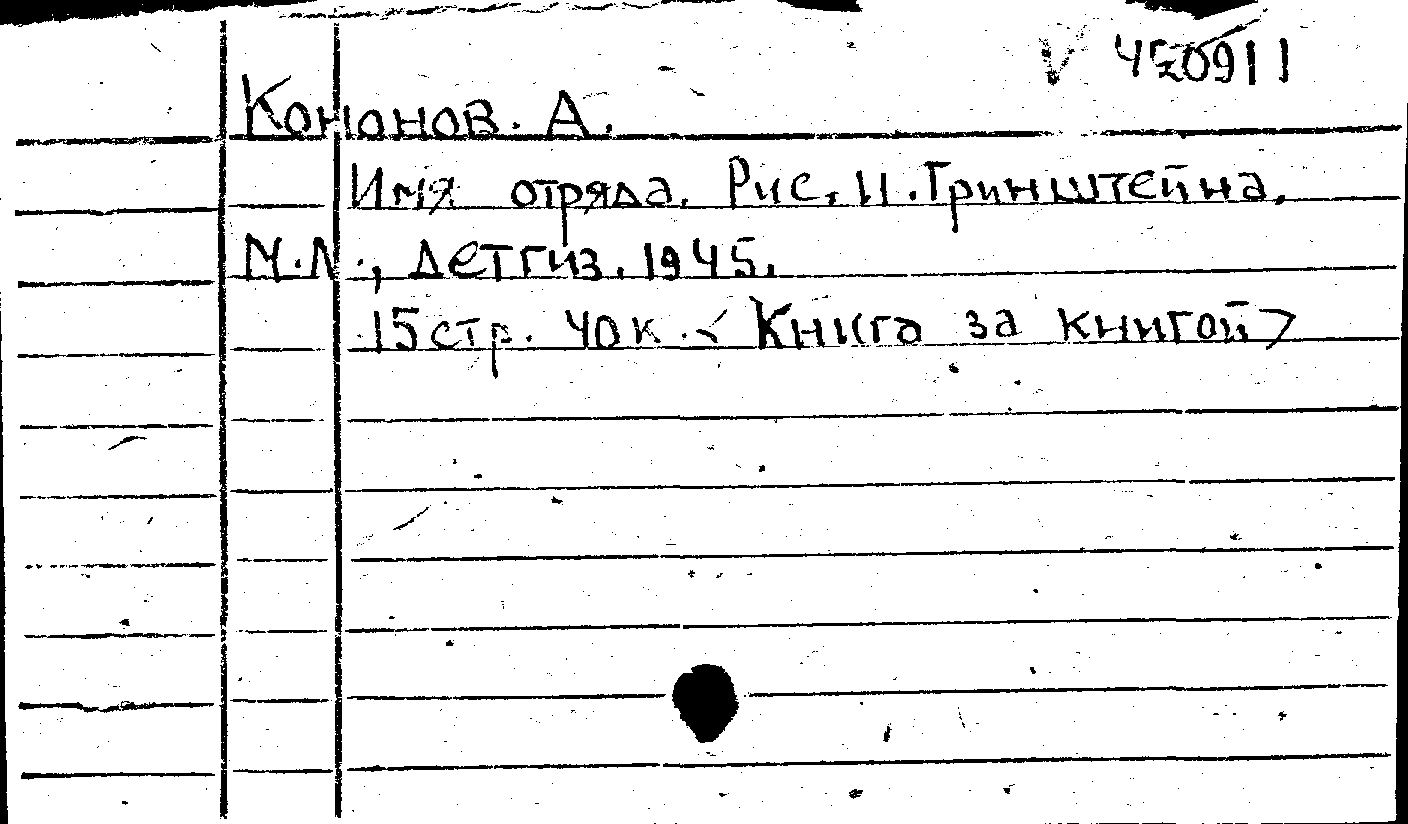 V 420911
Кононов. А.
Имя отряда. Рис. И. Гринштейна.
М.Л., Детгиз. 1945.
15 стр. 40 к. < Книга за книгой >